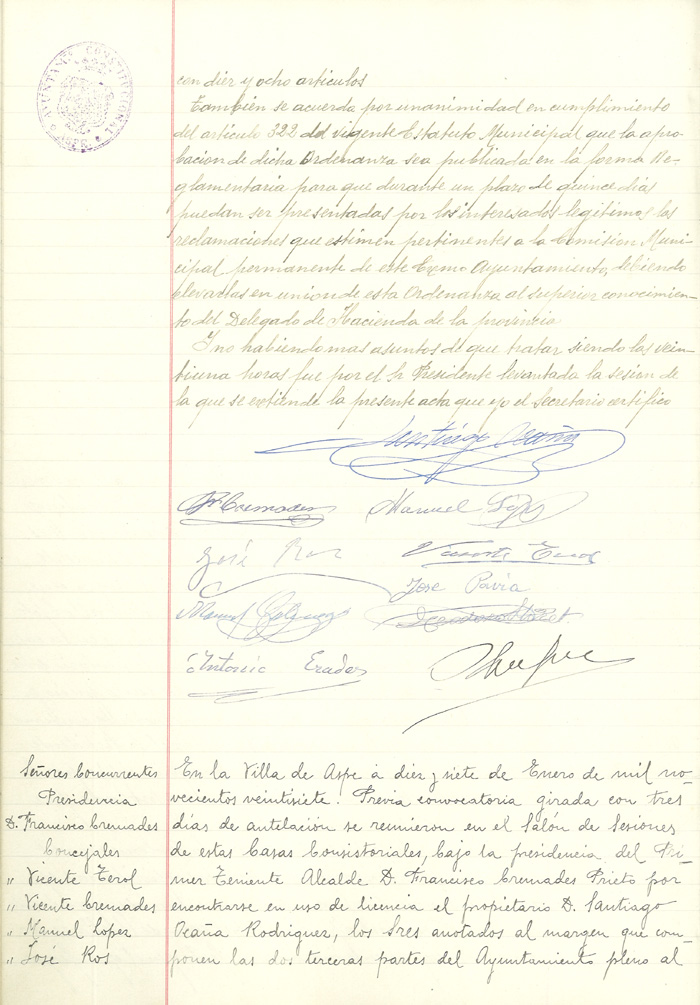 AYUNTAMTO CONSTITUCIONAL
ASPE
con diez y ocho articulos
También se acuerda por unanimidad en cumplimiento
del articulo 322 del vigente Estatuto Municipal que la apro-
bacion de dicha Ordenanza sea publicada en la forma Re-
glamentaria para que durante un plazo de quince dias
puedan ser presentadas por los interesados legitimos las
reclamaciones que estimen pertinentes a la Comision Muni-
cipal permanente de este Exmo Ayuntamiento, debiendo
elevarlas en unión de esta Ordenanza al superior conocimien-
to del Delegado de Hacienda de la provincia
Y no habiendo mas asuntos de que tratar siendo las vein-
tiuna horas fue por el Sr Presidente levantada la sesion de
la que se extiende la presente acta que yo el Secretario certifico
Santiago Ocaña
Cremades Manuel
José Ros Vicente Terol
Jose Pavia
Manuel
Antonio
Señores Concurrentes
Presidencia
D. Francisco Cremades
Concejales
" Vicente Terol
" Vicente Cremades
" Manuel Lopez
" José Ros
En la Villa de Aspe á diez y siete de Enero de mil no-
vecientos veintisiete. Previa convocatoria girada con tres
días de antelación se reunieron en el Salón de Sesiones
de estas Casas Consistoriales, bajo la presidencia del Pri-
mer Teniente Alcalde D. Francisco Cremades Prieto por
encontrarse en uso de licencia el propietario D. Santiago
Ocaña Rodriguez, los Sres anotados al margen que com-
ponen las dos terceras partes del Ayuntamiento pleno al